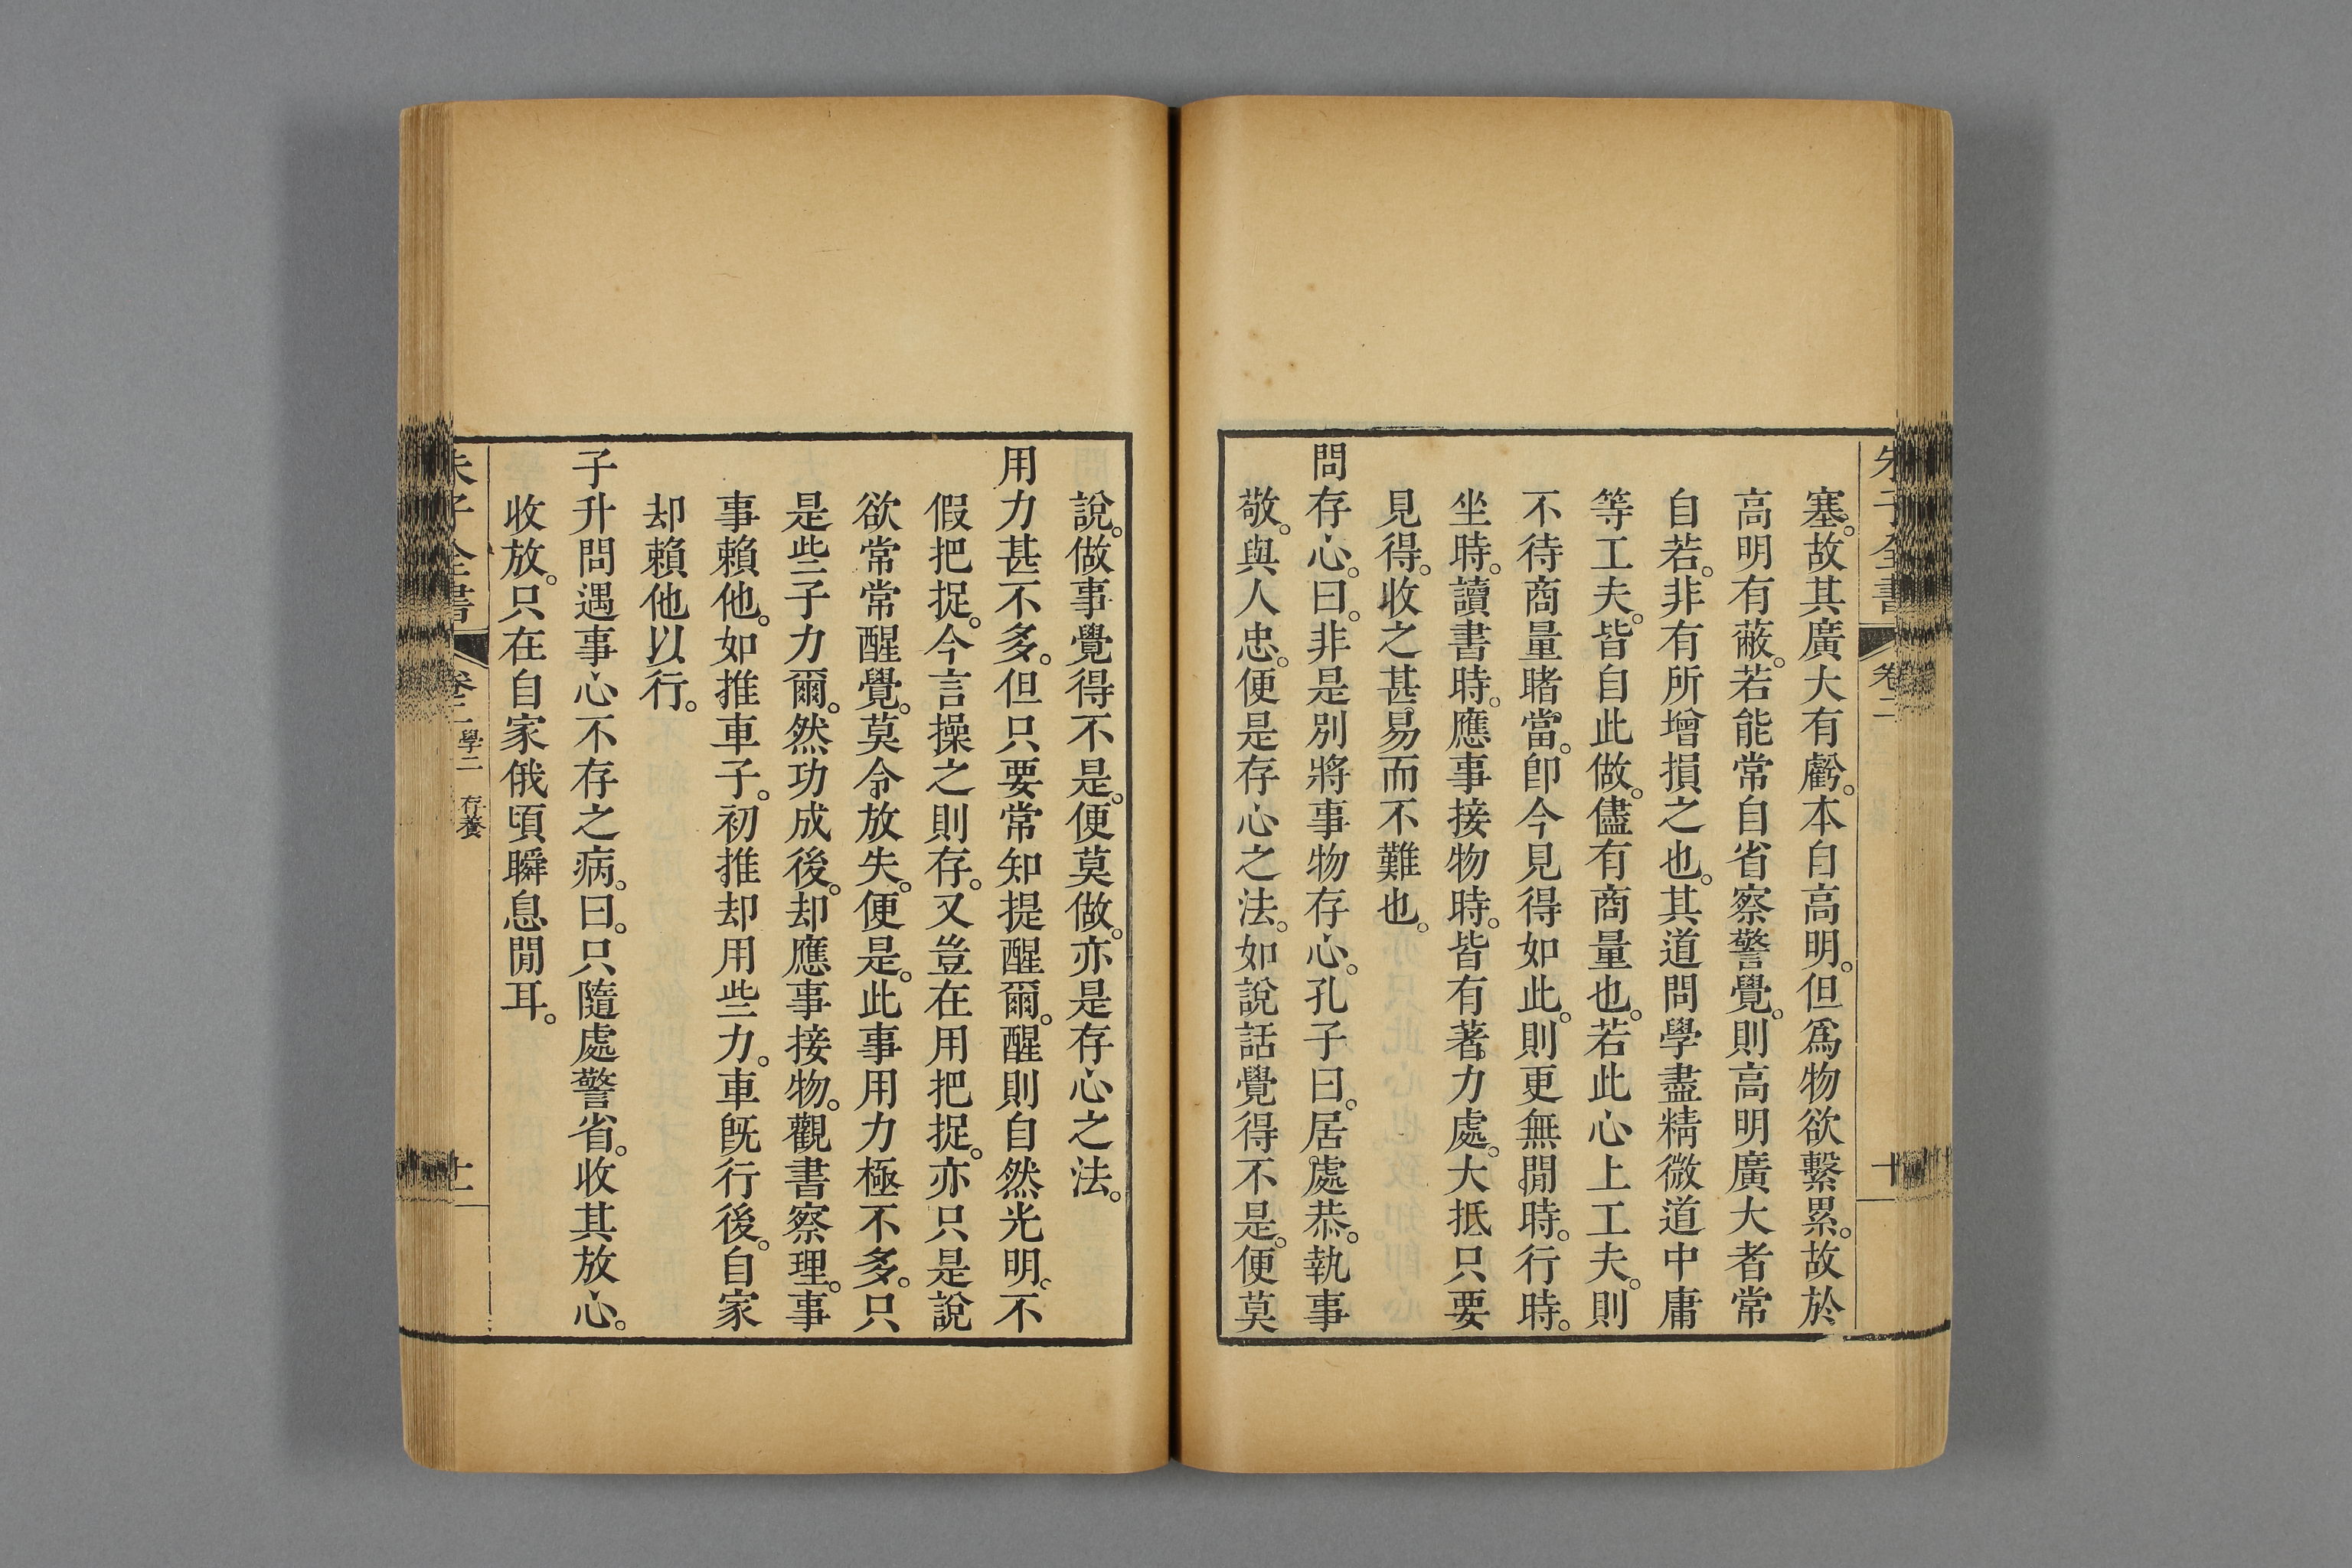 朱子全書 卷二 十
塞。故其廣大有虧。本自高明。但爲物欲繫累。故於
高明有蔽。若能常自省察警覺。則高明廣大者常
自若。非有所增損之也。其道問學盡精微道中庸
等工夫。皆自此做。儘有商量也。若此心上工夫。則
不待商量睹當。卽今見得如此。則更無閒時。行時。
坐時。讀書時。應事接物時。皆有著力處。大抵只要
見得。收之甚易而不難也。
問存心。曰。非是別將事物存心。孔子曰。居處恭。執事
敬。與人忠。便是存心之法。如說話覺得不是。便莫
說。做事覺得不是。便莫做。亦是存心之法。
用力甚不多。但只要常知提醒爾。醒則自然光明。不
假把捉。今言操之則存。又豈在用把捉。亦只是說
欲常常醒覺。莫令放失。便是。此事用力極不多。只
是些子力爾。然功成後。却應事接物。觀書察理。事
事賴他。如推車子。初推却用些力。車旣行後。自家
却賴他以行。
子升問遇事心不存之病。曰。只隨處警省。收其放心。
收放。只在自家俄頃瞬息閒耳。
朱子全書 卷二 學二 存養